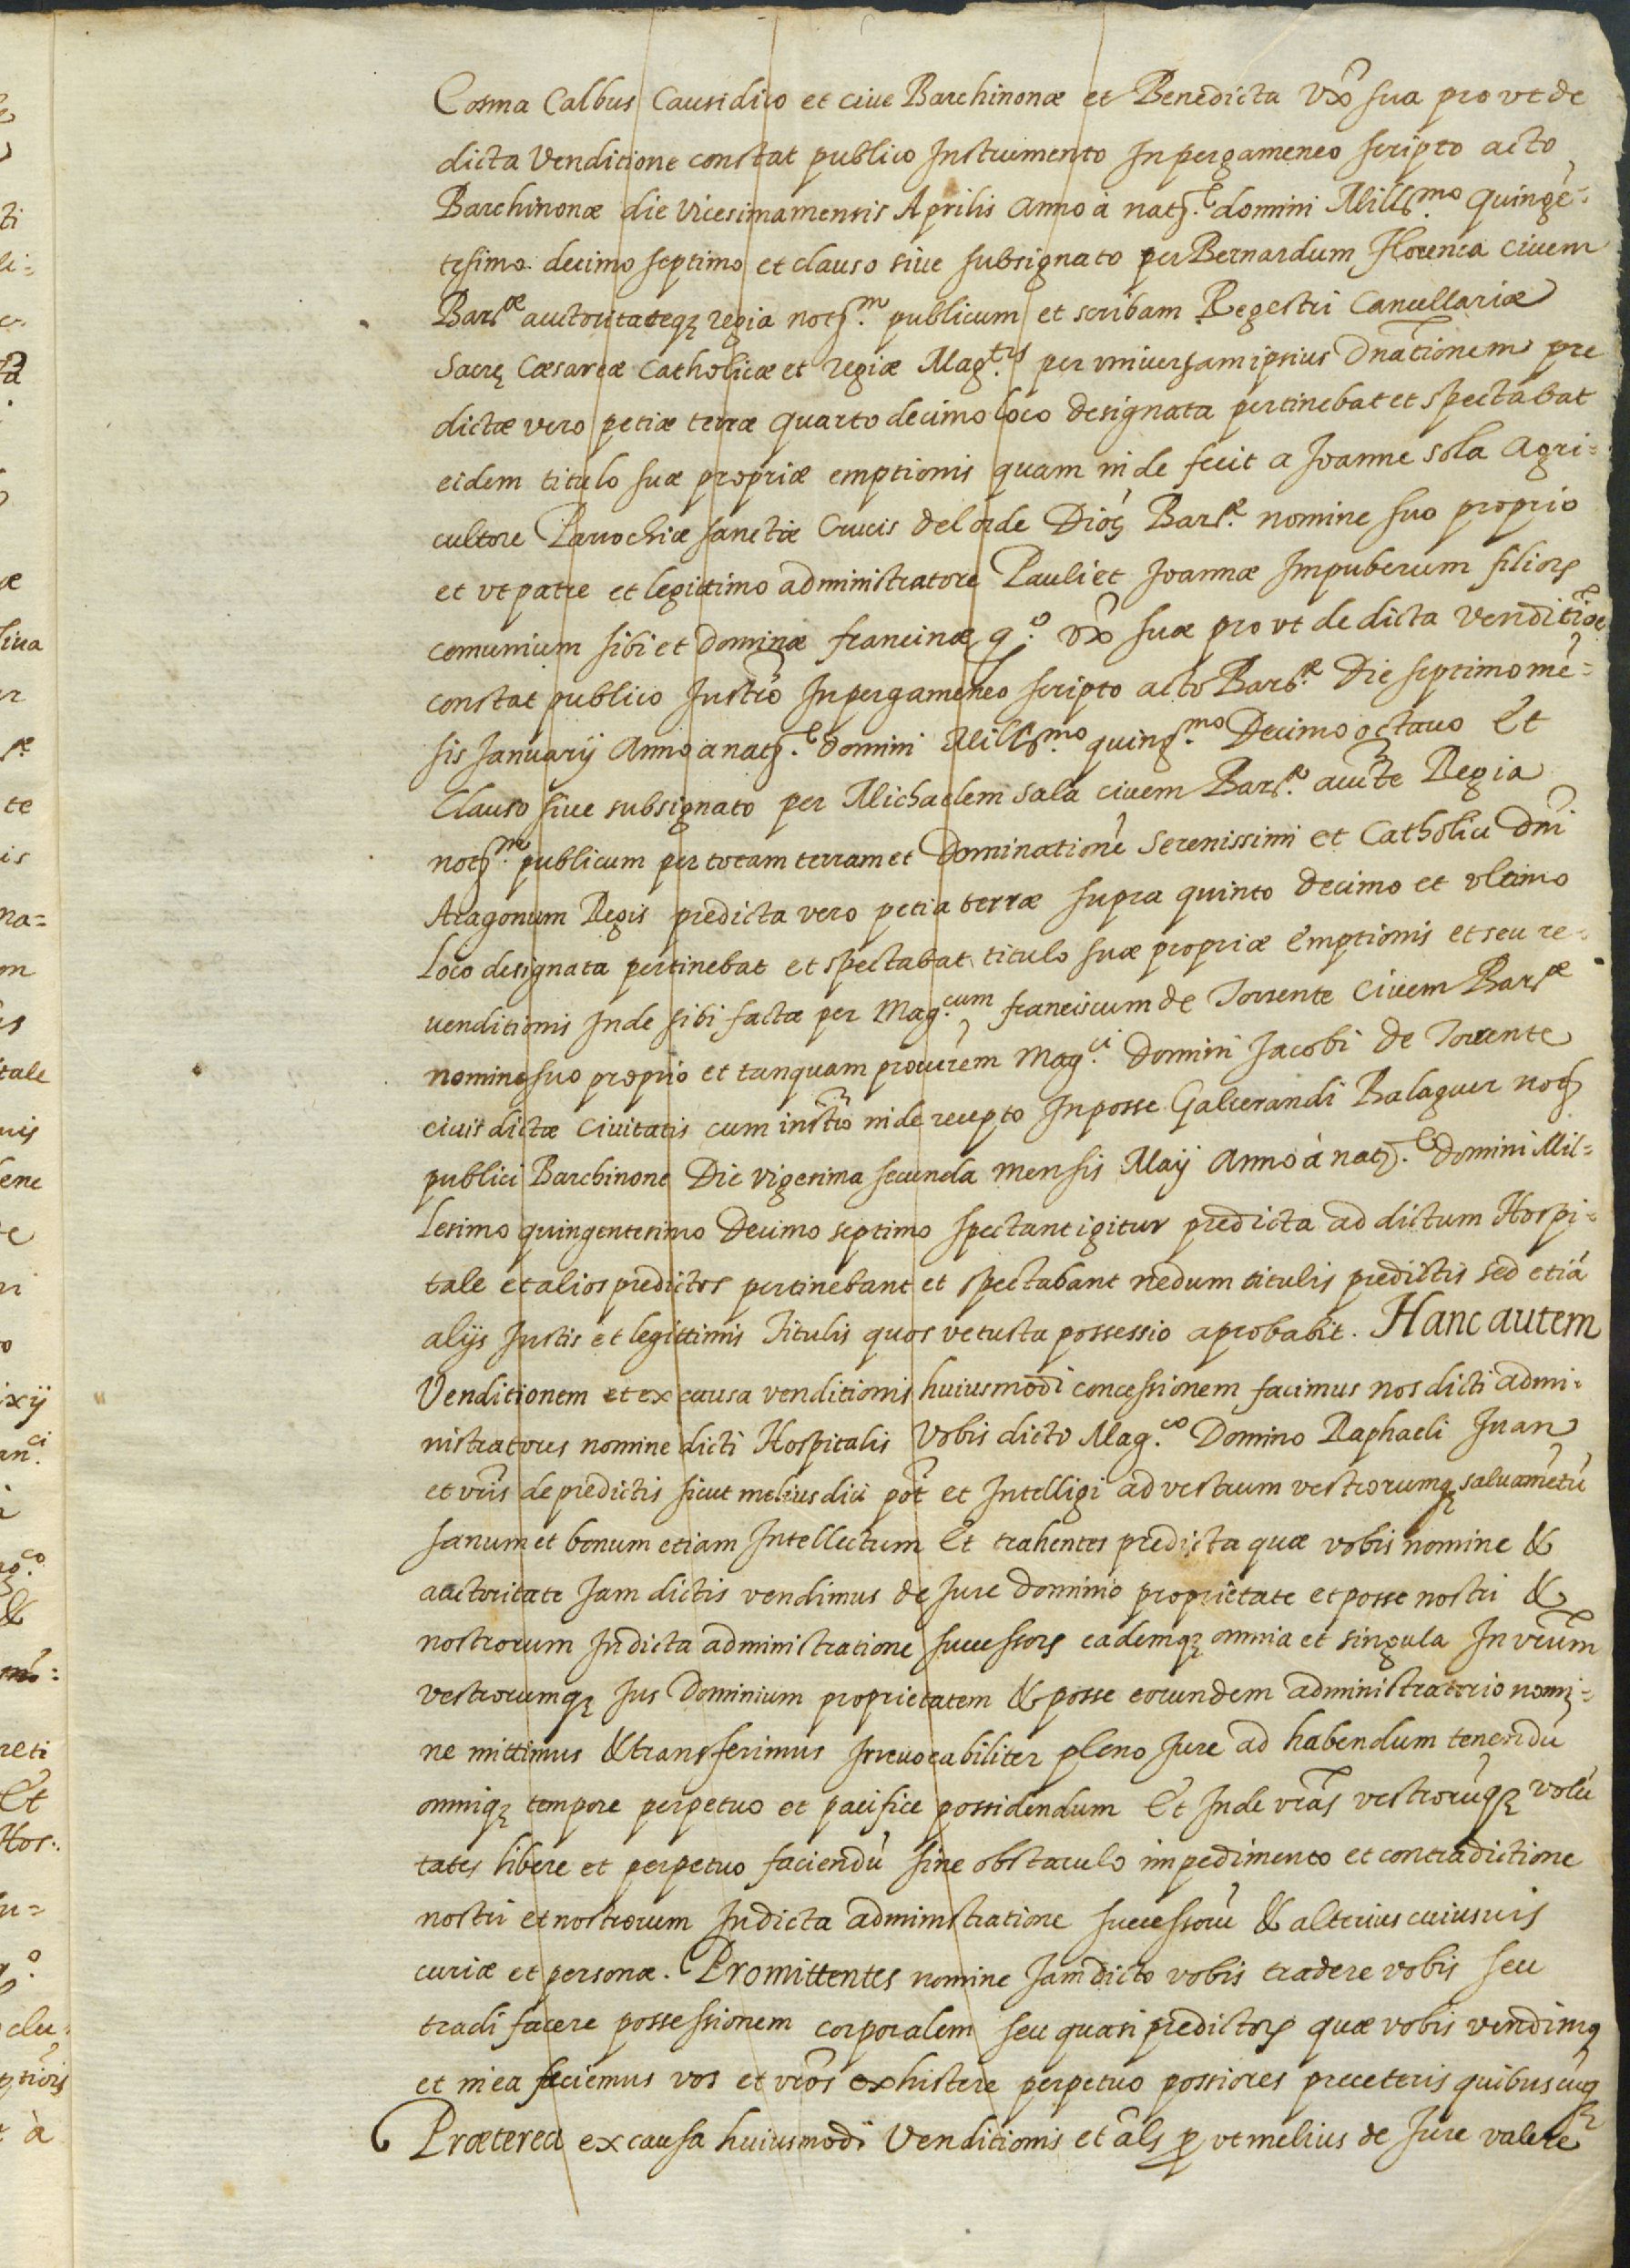 Cosma Calbus Causidico et ciue Barchinonæ et Benedicta Vxõ sua pro vt de
dicta Venditione constat publico Instrumento In pergameneo scripto acto
Barchinonæ die Vicesima mensis Aprilis Anno a natᵗ.e domini Mill.mo quingẽ=
tesimo decimo septimo et clauso siue subsignato per Bernardum Florença ciuem
Barᶜæ auctoritateqȝ regia not.m publicum et scribam Regestri Cancellariæ
Sacrę Cæsareæ Catholicæ et regiæ Mag.tis per vniuersam ipsius Dnãtionem pre
dictæ vero petiæ terræ quarto decimo loco designata pertinebat et spectabat
eidem titulo suæ propriæ emptionis quam inde fecit a Joanne sola Agri=
cultore Parrochiæ sanctæ Crucis del orde Dioȝ Barᶜ.æ nomine suo proprio
et vt patre et legittimo administratore Pauli et Joannæ Impuberum filioꝝ
comunium sibi et Dominæ francinæ q.o vxõ suæ pro vt de dicta venditiõe
constat publico Instrõ In pergameneo scripto acto Barᶜ.æ Die septimo mẽ=
sis Januarij Anno a nat.e Domini Mill.mo quing.mo Decimo octauo Et
Clauso siue subsignato per Michaelem sala ciuem Barᶜ.æ aucte Regia
not.m publicum per totam terram et Dominationẽ Serenissimi et Catholici Dnĩ
Aragonum Regis predicta vero petia terræ supra quinto decimo et vltimo
Loco designata pertinebat et spectabat titulo suæ propriæ Emptionis et seu re=
venditionis Inde sibi factæ per Mag.cum franciscum de Torrente Ciuem Barᶜæ
nomine suo proprio et tanquam procurẽm Mag.ci Domini Jacobi de Torrente
ciuis dictæ Ciuitatis cum instrõ inde recepto In posse Galcerandi Balaguer not
publici Barchinone Die vigesima secunda mensis Maij Anno à nat.e Domini Mil=
lesimo quingentesimo Decimo septimo spectant igitur predicta ad dictum Hospi=
tale et alios predictos pertinebant et spectabant nedum titulis predictis sed etiã
alijs Justis et legittimis Titulis quos vetusta possessio aprobabit. Hanc autem
Venditionem et ex causa venditionis huiusmodi concessionem facimus nos dicti admi=
nistratores nomine dicti Hospitalis Vobis dicto Mag.co Domino Raphaeli Juan
et vrĩs de predictis sicut melius dici põt et Intelligi ad vestrum vestrorumqȝ saluamẽtũ
sanum et bonum etiam Intellectum Et trahentes predicta quæ vobis nomine &
auctoritate Jam dictis vendimus de Jure Dominio proprietate et posse nostri &
nostrorum In dicta administratione successoꝝ eademqȝ omnia et singula In vrũm
vestrorumqȝ Jus Dominium proprietatem & posse eorundem administratorio nomi=
ne mittimus & transferimus Irreuocabiliter pleno Jure ad habendum tenendũ
omniqȝ tempore perpetuo et pacifice possidendum Et Inde vrãs vestrorũqȝ volũ
tates libere et perpetuo faciendũ sine obstaculo impedimento et contradictione
nostri et nostrorum In dicta administratione successorũ & alterius cuiusuis
curiæ et personæ. Promittentes nomine Jam dicto vobis tradere vobis seu
tradi facere possessionem corporalem seu quasi predictoꝝ quæ vobis vendimꝯ
et in ea faciemus vos et vrõs exhistere perpetuo potiores preceteris quibuscũqȝ
Præterea ex causa huiusmodi Venditionis et ãls ꝓ vt melius de Jure valere